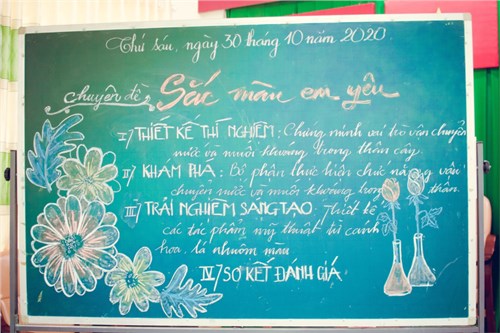 Thứ sáu, ngày 30 tháng 10 năm 2020.
Chuyên đề: Sắc màu em yêu
I/ THIẾT KẾ THÍ NGHIỆM: Chứng minh vai trò vận chuyển
nước và muối khoáng trong thân cây.
II/ KHÁM PHÁ: Bộ phận thực hiện chức năng vận
chuyển nước và muối khoáng trong thân.
III/ TRẢI NGHIỆM SÁNG TẠO: Thiết kế
các tác phẩm mỹ thuật từ cành
hoa, lá nhuộm màu
IV/ SƠ KẾT ĐÁNH GIÁ